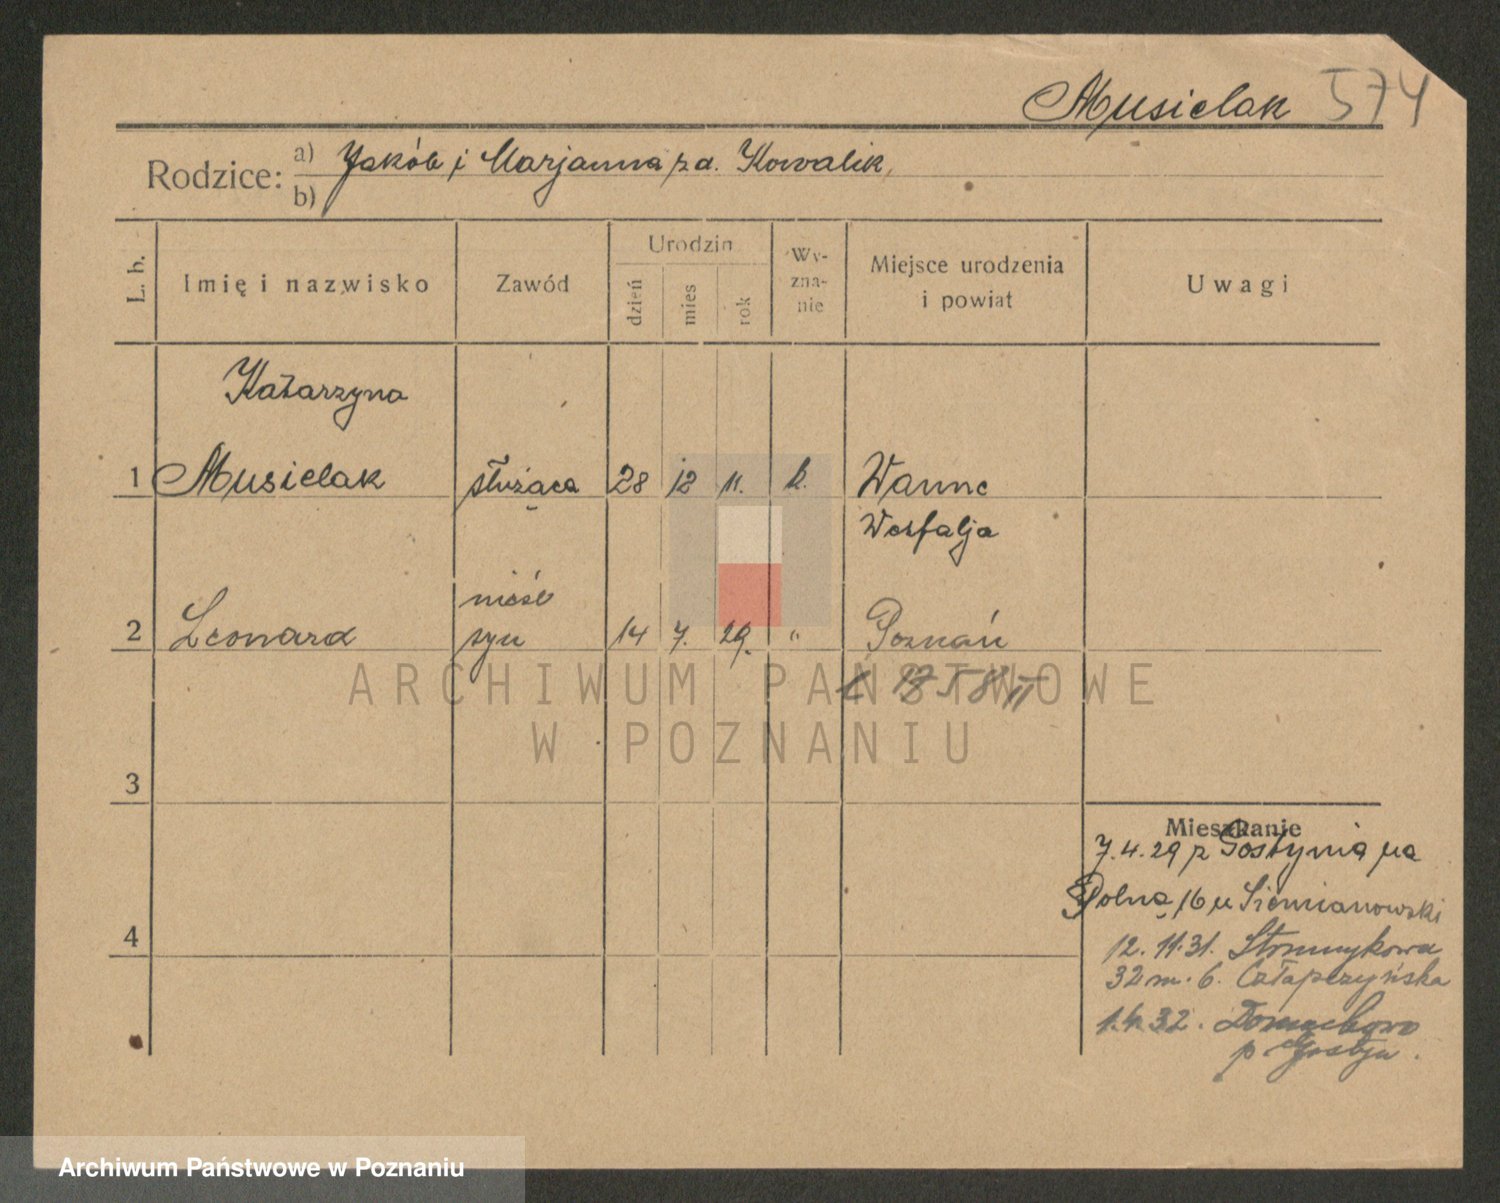 Musielak 574
Rodzice: a) Jakób i Marjanna z d. Kowalik
b)
L. b. Imię i nazwisko Zawód Urodzin dzień mies rok Wy-zna-nie Miejsce urodzenia i powiat Uwagi
Katarzyna
1 Musielak służąca 28 12 11. k. Wanne
Westfalja
nieśl
2 Leonard syn 14 7. 29. " Poznań
ARCHIWUM PAŃSTWOWE
W POZNANIU
3
Mieszkanie
7.4.29 z Gostynia na
Polną 16 u Siemianowski
4
12. 11. 31. Strumykowa
32 m. 6. Człapczyńska
1.4.32. Domachowo
p Gostyn.
Archiwum Państwowe w Poznaniu